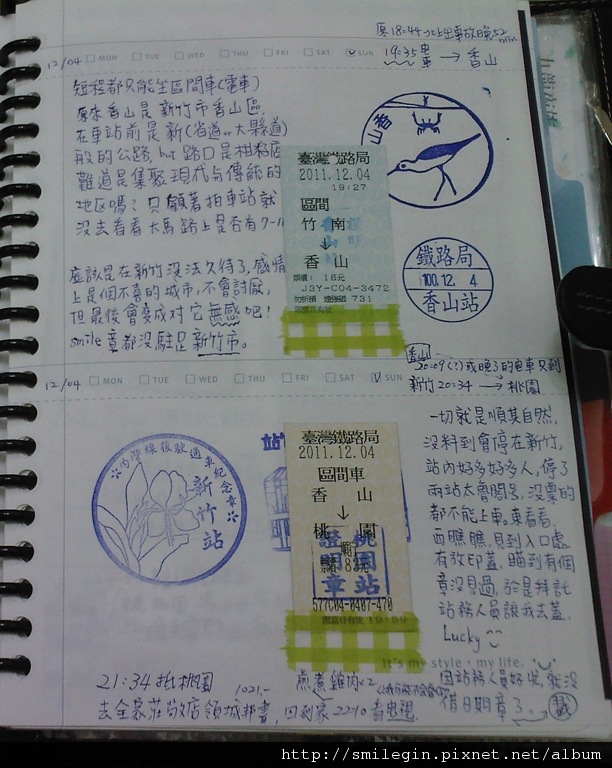 原18:44北上出車故晚52min
12/04 MON TUE WED THU FRI SAT SUN 19:35 電車 → 香山
短程都只能坐區間車(電車)
原來香山是新竹市香山區
在車站前是新(省道or大縣道)
般的公路, but 路口是柑仔店
難道是集聚現代与傳統的
地区嗎? 只顧著拍車站就
沒去看看大馬路上是否有7-11
應該是在新竹沒法久待了,感情
上是個不喜的城市,不會討厭,
但最後會變成对它無感吧!
smile 蓋都沒駐足新竹市。
臺灣鐵路局
2011.12.04
19:27
區間
竹 南
↓
香 山
票價: 16元
J3Y-C04-3472
731
限當日有效
香山
鐵路局
100.12. 4
香山站
12/04 MON TUE WED THU FRI SAT SUN
香山
20:09(?)或晚了的電車只到
新竹 20:34 → 桃園
內灣線復駛通車紀念章
新竹站
臺灣鐵路局
2011.12.04
區間車
香 山
↓
桃 園
票價 83元
桃園站
證明章
577C04-0407-470
限當日有效 19:59
一切就是順其自然,
沒料到會停在新竹,
站內好多好多人,停了
兩站太魯閣号,沒票的
都不能上車,東看看
西瞧瞧,見到入口處
有放印蓋,瞄到有個
章沒見過,於是拜託
站務人員讓我去蓋.
Lucky
It's my style・my life.
因站務人員好忙,就沒
借日期章了.
21:34 抵桃園
去全家莊敬店領城邦書, 1021.-
回到家 2210